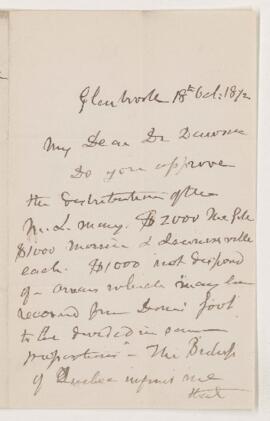 Glenbrook 18th Oct: 1872
My Dear Dr Dawson
Do you approve
the distribution of the
$2000
$1000 Morrin &
each. $1000 not disposed
of – which "may be
received from
to be divided in same
proportion" – The Bishop
of Quebec informs me
that